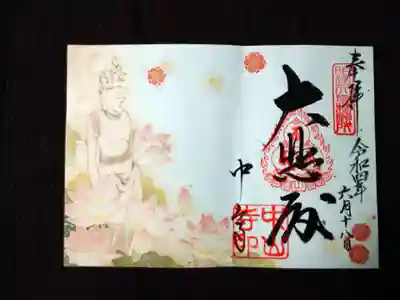 奉拝
大悲殿
中山寺
令和四年
六月十八日
中山
寺印